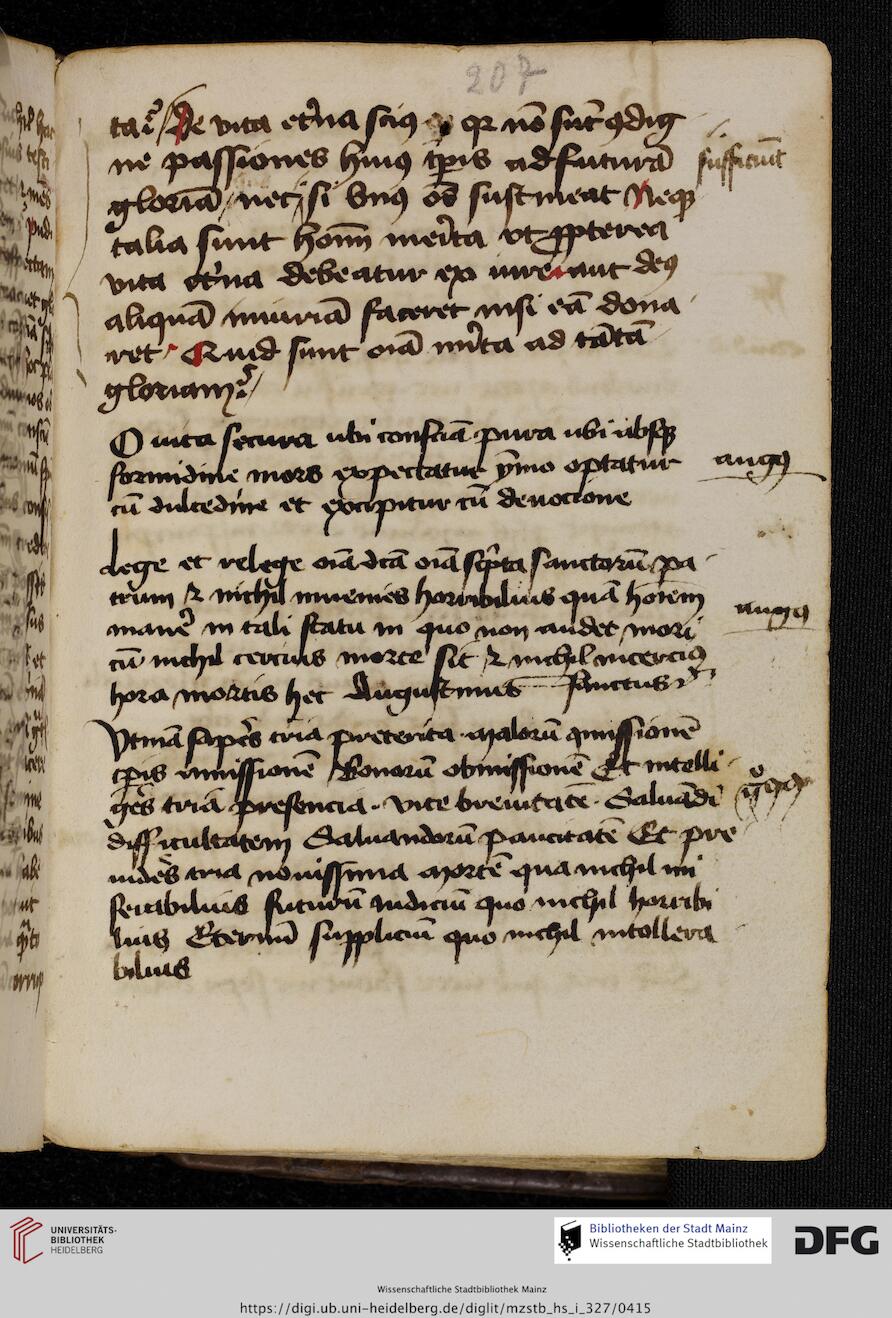 207
taī /De vita et̾na sciꝯ qꝛ nō sūt ꝯdig
ne passiones huiꝯ tp̄is ad futurā
sufficiūt
gloriā / nec / si vnꝯ oēs sustineat Neqꝫ
talia sunt hoīm merita vt ꝓpterea
vita et̾na debeatur ex iure aut deꝰ
aliquā iniuriā faceret nisi eā dona
ret Quid sunt oīa mĩta ad tātā
gloriam /
O vita secura ubi consciā pura ubi absqꝫ
formidine mors expectatur ymo optatur
augꝰ
cū dulcedine et excipitur cū deuocione
Lege et relege oīa dcā oīa sc̄pta sanctorū pa
trum ⁊ nichil inuenies horribilius quā hoīem
manē in tali statu in quo non audet mori
augꝰ
cū nichil cercius morte sit ⁊ nichil incerciꝰ
hora mortis hec Augustinus sanctus
Vtinā saperēs tria preterita malorū ꝯmissionē
tp̄is amissionē Bonorū obmissionē Et intelli
gēs tria presencia vite breuitatē Saluādi
difficultatem Saluandorū paucitatē Et pre
uidēs tria nouissima Mortē qua nichil mi
serabilius futurū iudiciū quo nichil horribi
lius Eternū suppliciū quo nichil intollera
bilius
UNIVERSITÄTS-
BIBLIOTHEK
HEIDELBERG
Bibliotheken der Stadt Mainz
Wissenschaftliche Stadtbibliothek
DFG
Wissenschaftliche Stadtbibliothek Mainz
https://digi.ub.uni-heidelberg.de/diglit/mzstb_hs_i_327/0415